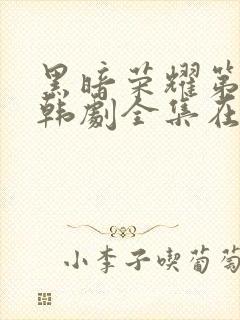 黑暗荣耀第
韩剧全集在
小李子喫葡萄